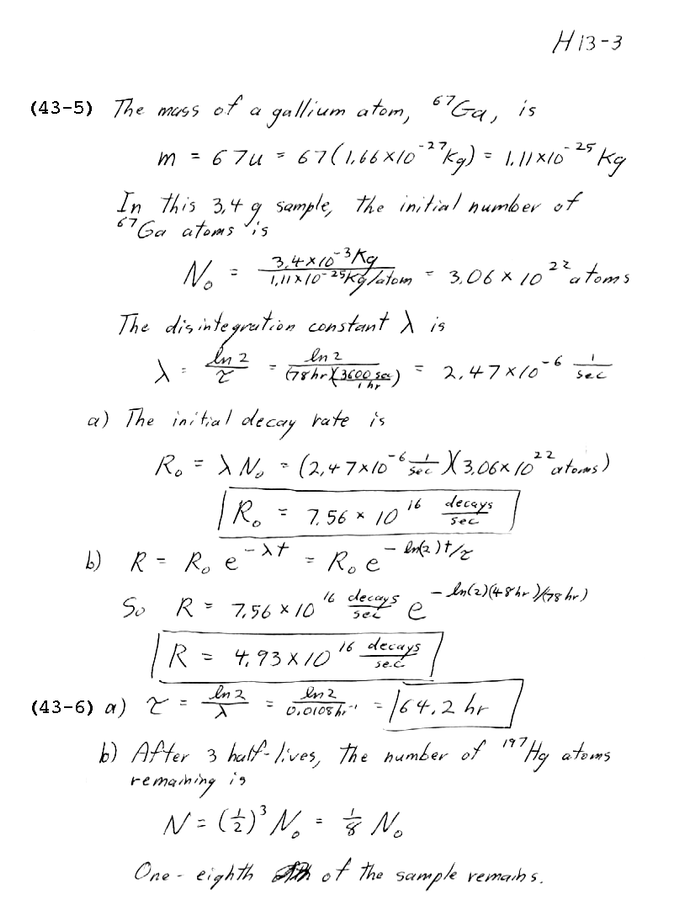 H13-3
(43-5) The mass of a gallium atom, ⁶⁷Ga, is
m = 67u = 67(1.66×10⁻²⁷kg) = 1.11×10⁻²⁵ Kg
In this 3.4 g sample, the initial number of
⁶⁷Ga atoms is
N₀ = 3.4×10⁻³Kg / 1.11×10⁻²⁵Kg/atom = 3.06 × 10²² atoms
The disintegration constant λ is
λ = ln 2 / τ = ln 2 / (78hr)(3600 sec / 1 hr) = 2.47×10⁻⁶ 1/sec
a) The initial decay rate is
R₀ = λ N₀ = (2.47×10⁻⁶ 1/sec)(3.06×10²² atoms)
R₀ = 7.56 × 10¹⁶ decays/sec
b) R = R₀ e^(-λt) = R₀ e^(-ln(2)t/τ)
So R = 7.56 × 10¹⁶ decays/sec e^(-ln(2)(48hr)/(78hr))
R = 4.93×10¹⁶ decays/sec
(43-6) a) τ = ln 2 / λ = ln 2 / 0.0108hr⁻¹ = 64.2 hr
b) After 3 half-lives, the number of ¹⁹⁷Hg atoms
remaining is
N = (1/2)³ N₀ = 1/8 N₀
One-eighth of the sample remains.